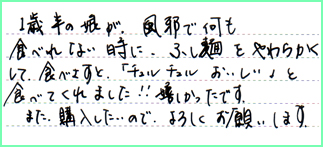 1歳半の娘が、風邪で何も
食べれない時に、ふし麺をやわらかく
して、食べさすと、「チュルチュルおいしい」と
食べてくれました!!嬉しかったです。
また、購入したいので、よろしくお願いします。